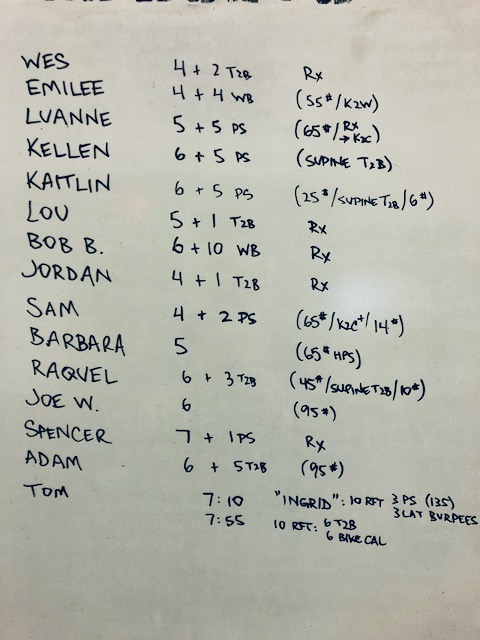 WES 4 + 2 T2B Rx
EMILEE 4 + 4 WB (55#/K2W)
LUANNE 5 + 5 PS (65#/Rx → K2C)
KELLEN 6 + 5 PS (SUPINE T2B)
KAITLIN 6 + 5 PS (25#/SUPINE T2B/6#)
LOU 5 + 1 T2B Rx
BOB B. 6 + 10 WB Rx
JORDAN 4 + 1 T2B Rx
SAM 4 + 2 PS (65#/K2C+/14#)
BARBARA 5 (65# HPS)
RAQUEL 6 + 3 T2B (45#/SUPINE T2B/10#)
JOE W. 6 (95#)
SPENCER 7 + 1 PS Rx
ADAM 6 + 5 T2B (95#)
TOM 7:10 "INGRID": 10 RFT 3 PS (135)
3 LAT BURPEES
7:55 10 RFT: 6 T2B
6 BIKE CAL